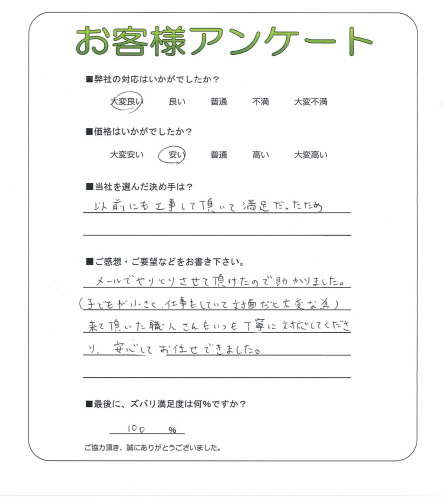 お客様アンケート
■弊社の対応はいかがでしたか？
大変良い 良い 普通 不満 大変不満
■価格はいかがでしたか？
大変安い 安い 普通 高い 大変高い
■当社を選んだ決め手は？
以前にも工事して頂いて満足だったため
■ご感想・ご要望などをお書き下さい。
メールでやりとりさせて頂けたので助かりました。
(子どもが小さく、仕事もしていて対面だと大変な為)
来て頂いた職人さんもいつも丁寧に対応してくださ
り、安心してお任せできました。
■最後に、ズバリ満足度は何%ですか？
100 %
ご協力頂き、誠にありがとうございました。